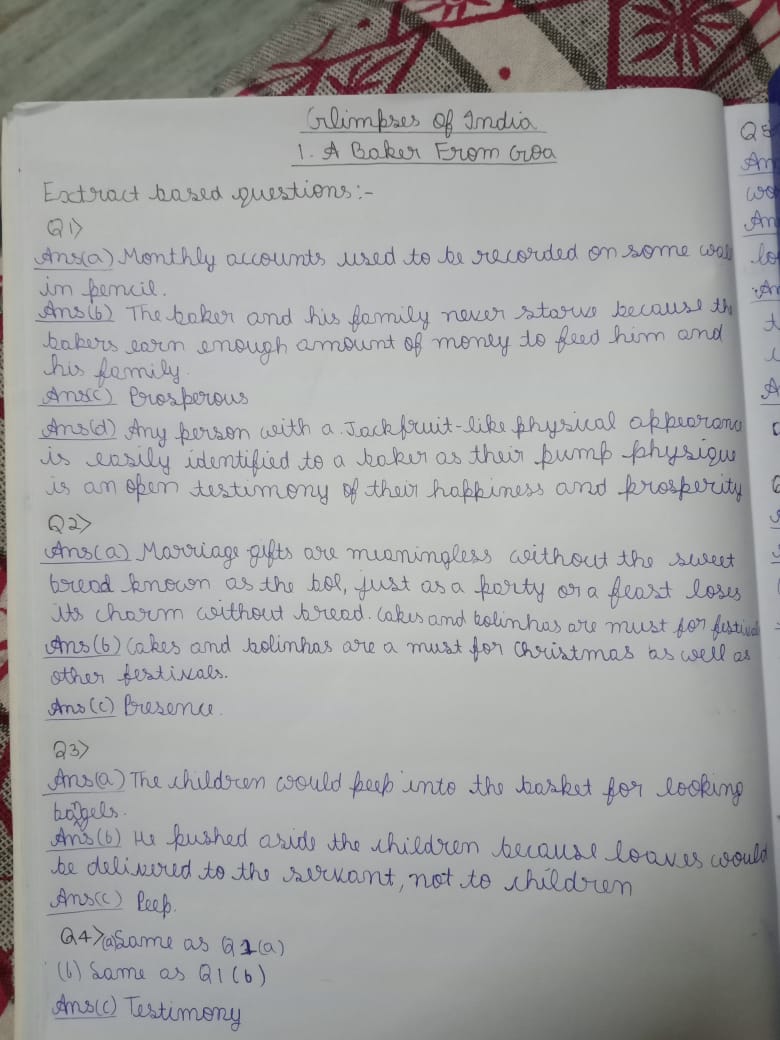 Glimpses of India
1. A Baker From Goa
Extract based questions:-
Q1>
Ans(a) Monthly accounts used to be recorded on some wall
in pencil.
Ans(b) The baker and his family never starve because the
bakers earn enough amount of money to feed him and
his family.
Ans(c) Prosperous
Ans(d) Any person with a Jackfruit-like physical appearanc
is easily identified to a baker as their pump physique
is an open testimony of their happiness and prosperity
Q2>
Ans(a) Marriage gifts are meaningless without the sweet
bread known as the bol, just as a party or a feast loses
its charm without bread. Cakes and bolinhas are must for festival
Ans(b) Cakes and bolinhas are a must for Christmas as well as
other festivals.
Ans(c) Presence.
Q3>
Ans(a) The children would peep into the basket for looking
bagels.
Ans(b) He pushed aside the children because loaves would
be delivered to the servant, not to children
Ans(c) Peep.
Q4>(a) Same as Q1(a)
(b) Same as Q1(b)
Ans(c) Testimony
Q5
An
wo
An
lo
An
t
A